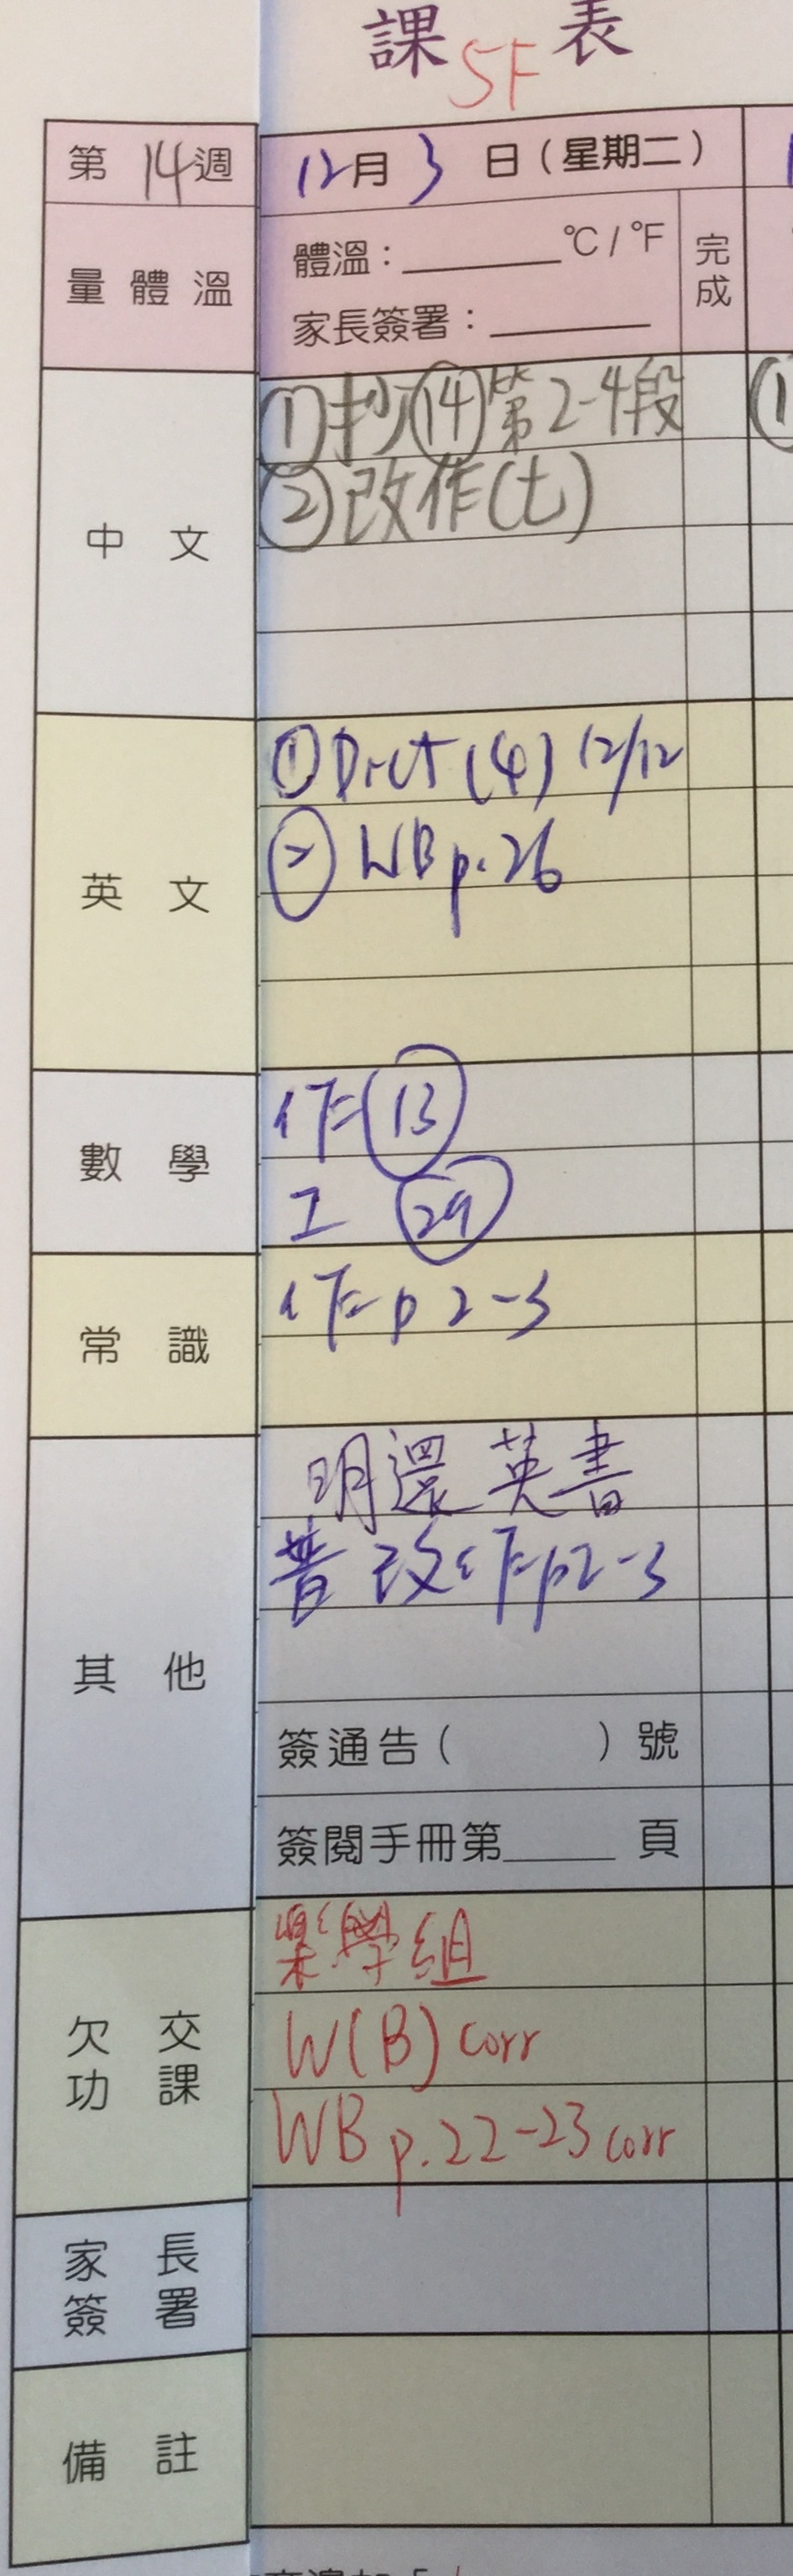 課 表
5F
第 14 週
12月 3 日（星期二）
量體溫
體溫：______ °C / °F
家長簽署：______
完成
中文
① 抄⑭第2-4段
② 改作(七)
英文
① Dict (4) 12/12
② WB p.26
數學
作 ⑬
工 ㉙
常識
作 p 2-3
其他
明還英書
普 改作 p2-3
簽通告（ ）號
簽閱手冊第______ 頁
欠交功課
學組
W(B) corr
WB p.22-23 corr
家長簽署
備註